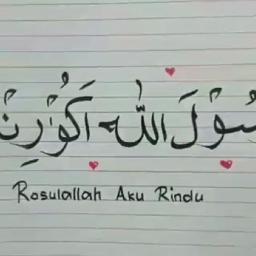 سُوْلَ اللّٰه اَكُوْ رِنْ
Rosulallah Aku Rindu